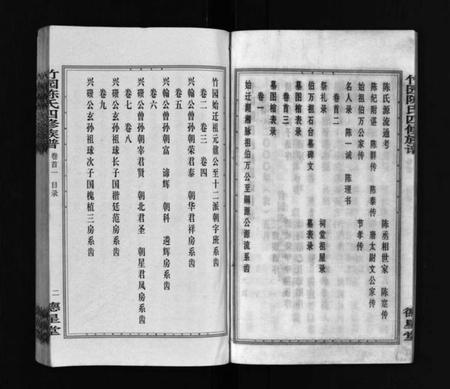 竹园陈氏四修族谱
陈氏源流通考 陈丞相世家 陈寔传
陈纪附谌 陈群传 陈泰传 唐太尉文公家传
始祖伯万公家传 节孝传
名人录 陈一诚 陈理书
卷首二
祭礼录 祠堂祖屋录
伯万祖石台墓碑文 墓表录
墓图棺表录
卷首三
墓图棺表录
卷一
始迁湖湘脉祖伯万公至嗣源公源流系齿
德星堂
竹园陈氏四修族谱 卷首一 目录
竹园始迁祖元健公至十二派朝字班系齿
卷二 卷三 卷四
兴翰公曾孙朝荣君泰 朝华君祥房系齿
卷五
兴翰公曾孙朝富 谛辉 朝科 遇辉房系齿
卷六
兴磴公曾孙朝幸君贤 朝北君圣 朝星君凤房系齿
卷七 卷八
兴磴公玄孙祖球长子国楷廷范房系齿
卷九
兴磴公玄孙祖球次子国槐植三房系齿
二 德星堂